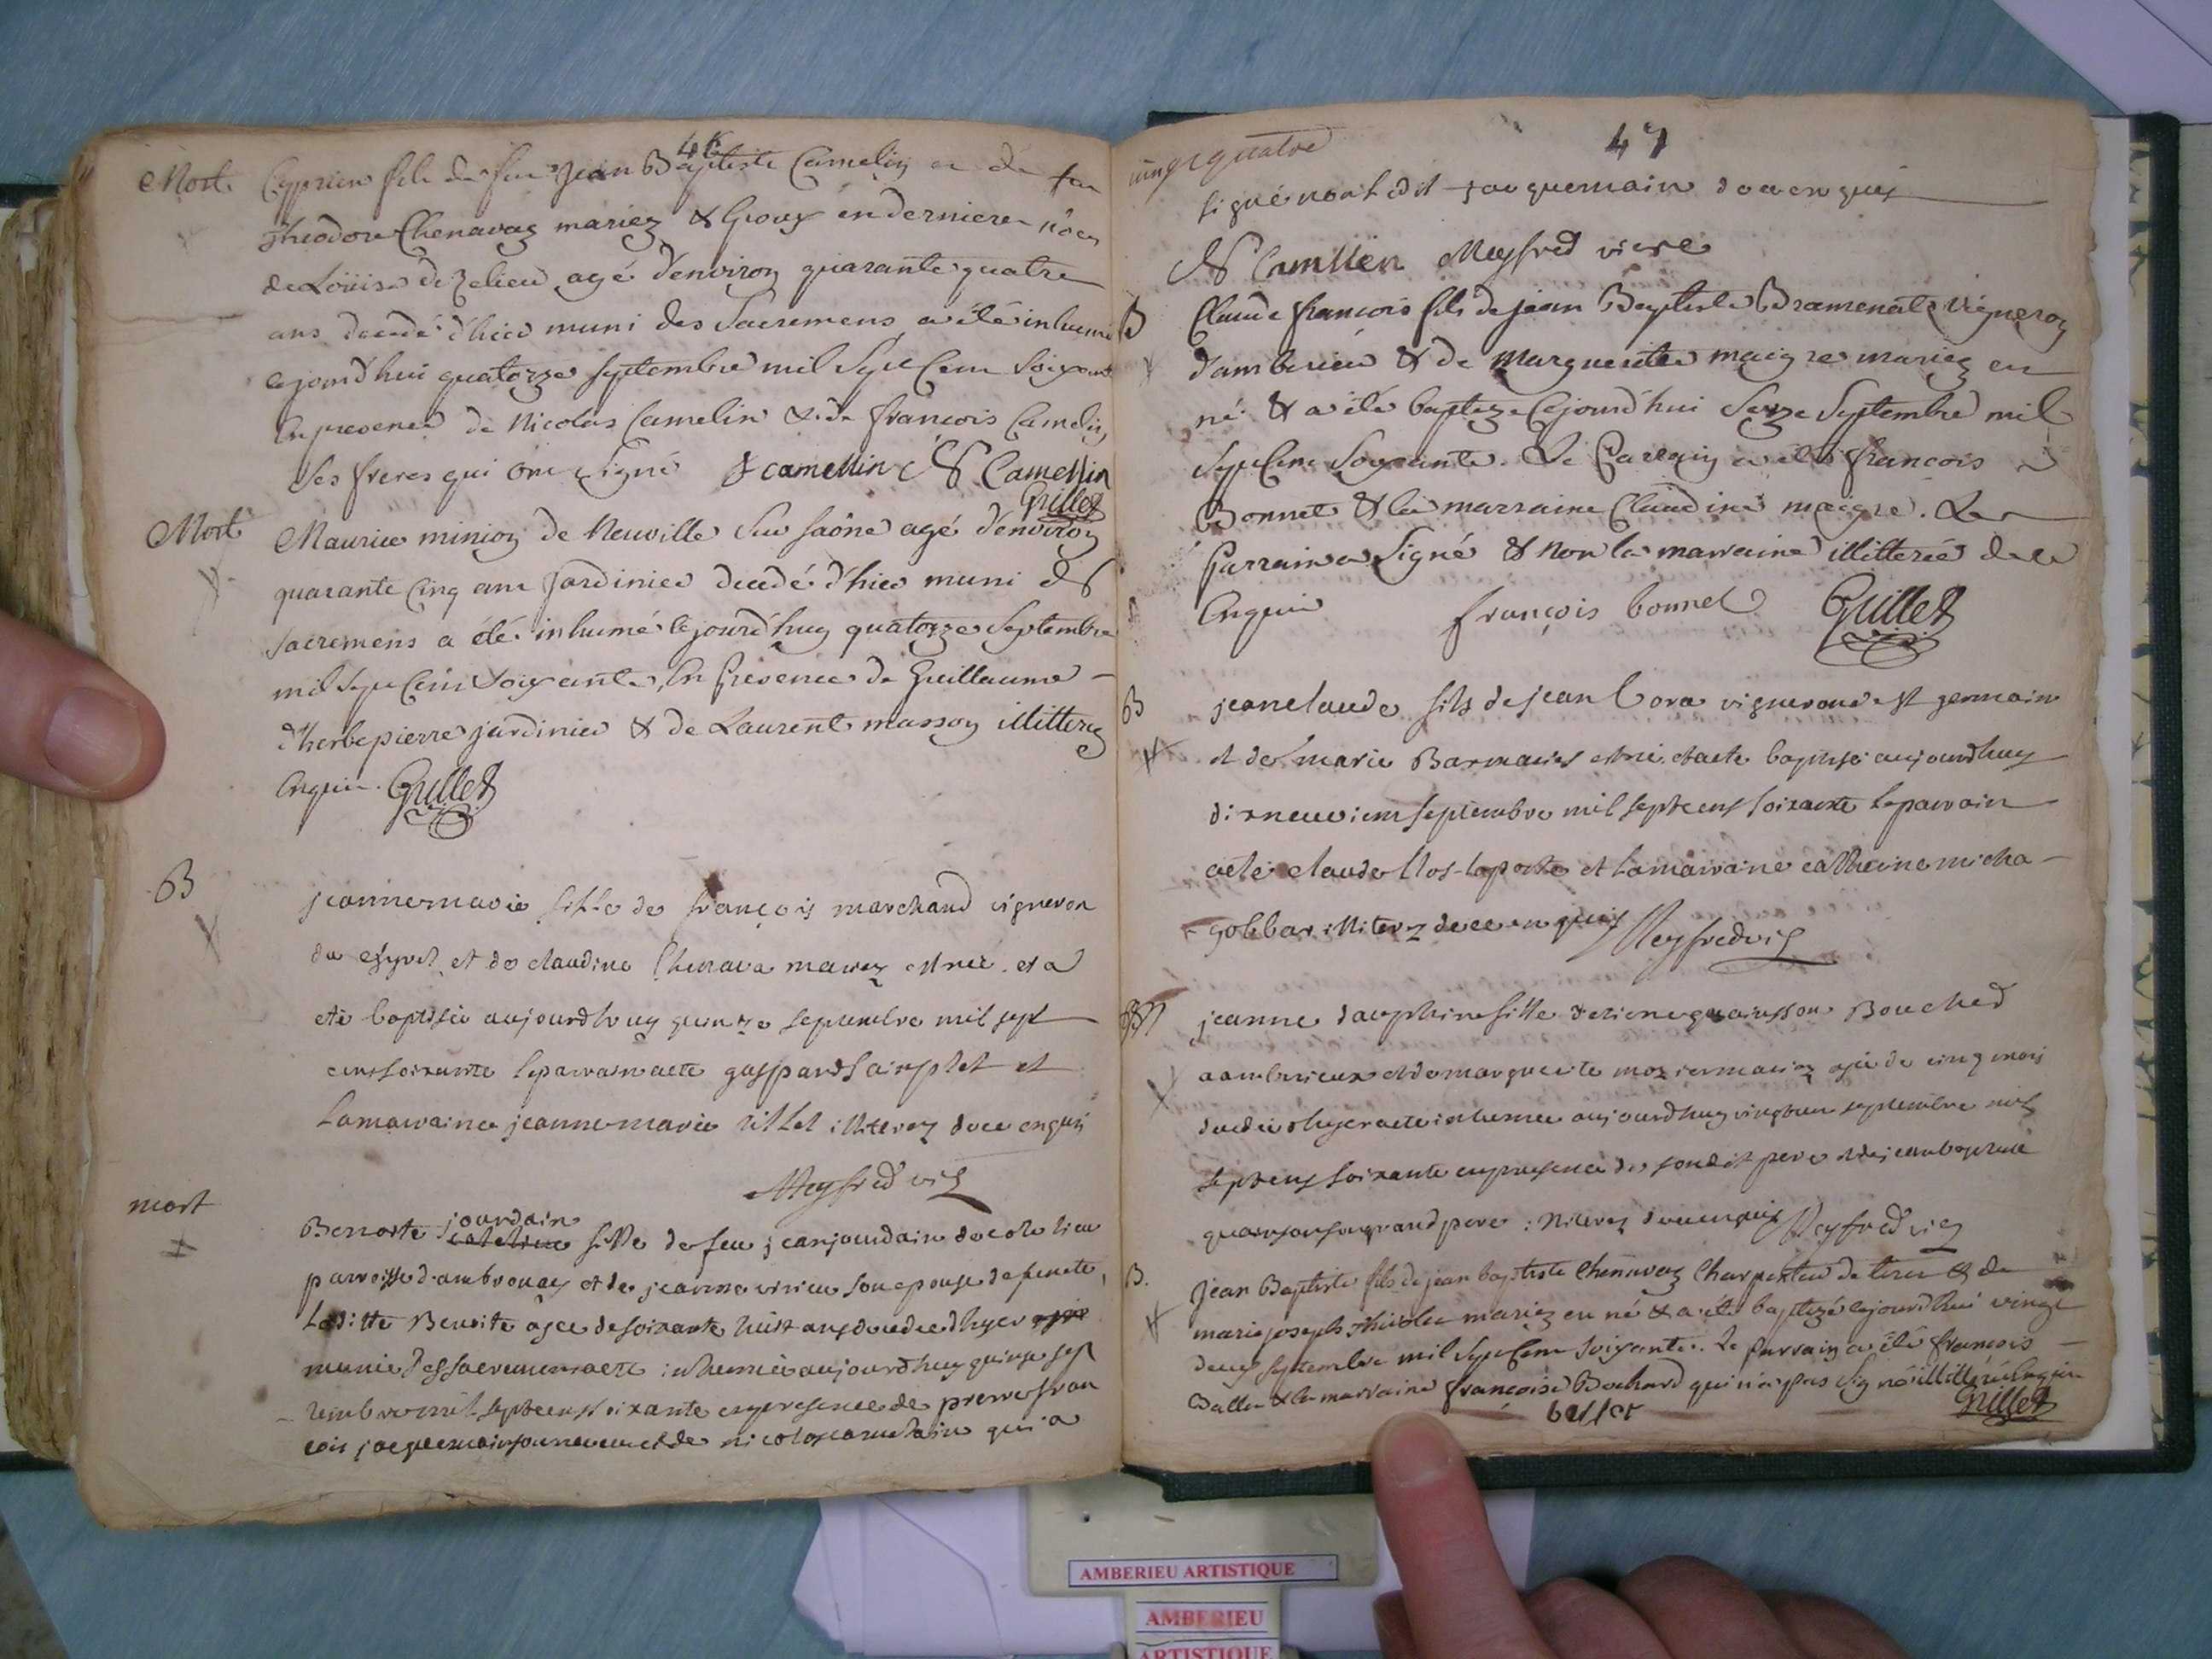 46
Mort Cyprien fils de feu Jean Baptiste Camelin et de feu
Theodore Chenavaz mariez & Epoux en dernieres nôces
de Loüise de Zelieu agé d'environ quarante quatre
ans decedé d'hier muni des Sacremens a été inhumé
cejourd'hui quatorze septembre mil Sept Cent Soixante
En presence de Nicolas Camelin & de francois Camelin
ses freres qui ont signé camellin Camellin
Grillet
Mort Maurice minion de Neuville Sur Saône agé d'environ
quarante Cinq ans Jardinier decedé d'hier muni des
sacremens a été inhumé cejourd'huy quatorze Septembre
mil Sept Cent Soixante, En Presence de Guillaume
d'herbepierre jardinier & de Laurent masson illitterez
Enquis. Grillet
B jeanne marie fille de françois marchand vigneron
du et de claudine Chenava mariez est née et a
eté baptisée aujourdhuy quinze septembre mil sept
cens soixante le parrain a ete gaspard et
la marraine jeanne marie illiterez de ce enquis
Meyfred vic
mort Benoite jourdain fille de feu jean jourdain de
parroisse d'ambronay et de jeanne son epouse defuncte,
laditte Benoite âgee de soixante huit ans decedee d'hyer
munie des sacremens a ete inhumée aujourdhuy quinze sep
tembre mil sept cens soixante en presence de pierre fran
cois jacquemain son neveu et de nicolas camelain qui a
vingt quatre
47
signé non ledit jacquemain de ce enquis
Camellin Meyfred vicre
B Claude francois fils de jean Baptiste Bramenat Vigneron
d'amberieu & de Marguerite maigre mariez est
né & a été baptizé Cejourd'hui Seize Septembre mil
Sept Cent Soixante. Le Parrain a été francois
Bonnet & la marraine Claudine maigre. Le
Parrain a Signé & Non la marraine illitterée de ce
Enquis françois bonnet Grillet
B jean claude fils de jean Cora vigneron de st germain
et de marie est né et a ete baptisé aujourdhuy
dixneuvieme septembre mil sept cens soixante le parrain
a ete claude et la marraine catherine micha
illiterez de ce enquis Meyfred vic
jeanne dauphine fille d'etiene Boucher
a ambrieux et de marguerite mariez agée de cinq mois
decedée d'hyer a ete inhumée aujourdhuy vingt un septembre mil
sept cens soixante en presence de son dit pere et de jean baptiste
son grand pere illiterez de ce enquis Meyfred vic
B. Jean Baptiste fils de jean baptiste Chenavaz Charpentier de & de
marie joseph mariez est né & a été baptizé cejourd'hui vingt
deux septembre mil Sept Cent Soixante. Le Parrain a été francois
Ballet & la marraine francoise Bochard qui n'a pas Signé illitterée Enquise
ballet Grillet
AMBERIEU ARTISTIQUE
AMBERIEU
ARTISTIQUE